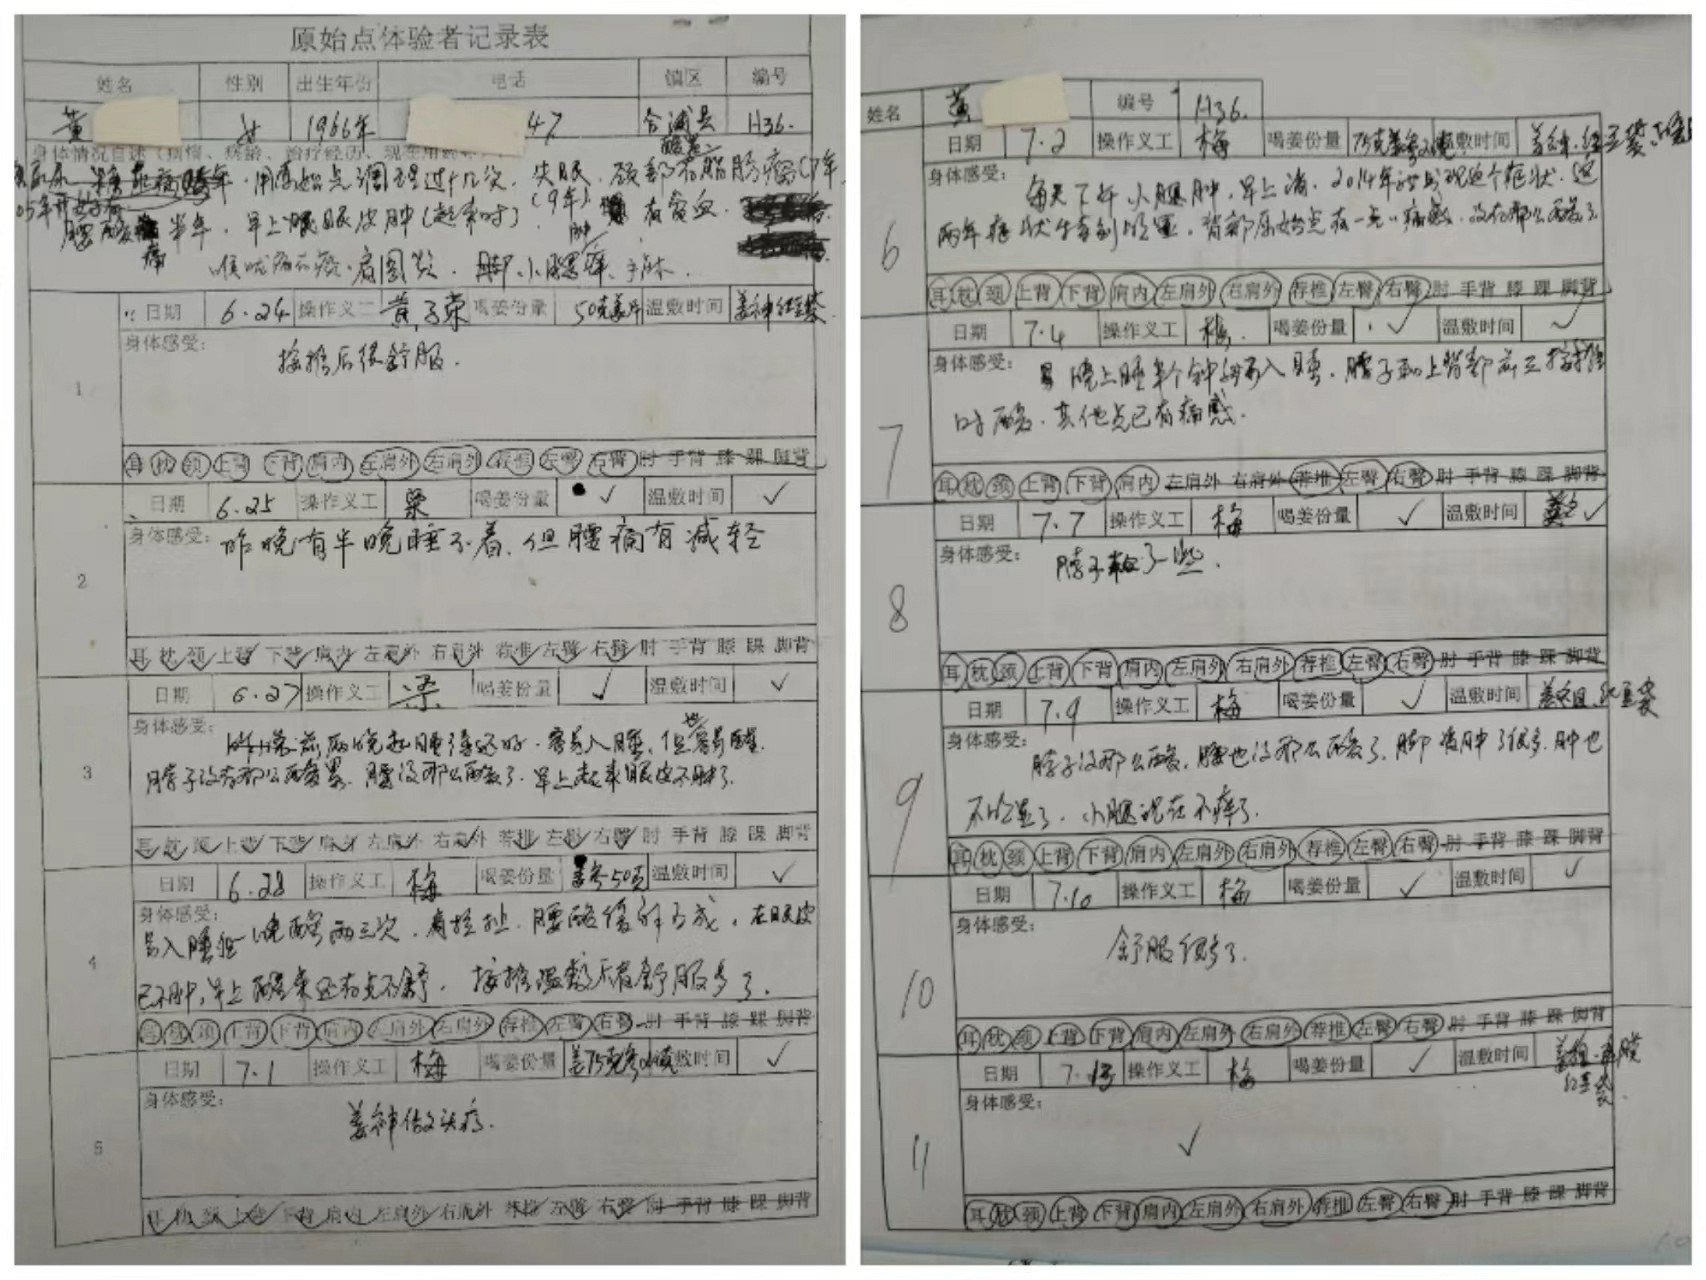 原始点体验者记录表
姓名 性别 出生年份 电话 镇区 编号
黄 女 1966年 47 合浦县 H36.
身体情况自述(病情、病龄、治疗经历、现在用药
用原始点调理过十几次. 失眠. 颈部有脂肪瘤(7年.
05年开始有
腰酸痛半年, 早上眼皮肿(起来时) (9年) 有贫血
喉咙 肩周炎. 脚肿、小腿痒、手麻.
1
日期 6.24 操作义工 黄 荣 喝姜份量 50克姜片 温敷时间 姜神红豆袋
身体感受:
按推后很舒服.
耳 枕 颈 上背 下背 肩内 左肩外 右肩外 荐椎 左臀 右臀 肘 手背 膝 踝 脚背
2
日期 6.25 操作义工 梁 喝姜份量 ✓ 温敷时间 ✓
身体感受:
昨晚有半晚睡不着、但腰痛有减轻
耳 枕 颈 上背 下背 肩内 左肩外 右肩外 荐椎 左臀 右臀 肘 手背 膝 踝 脚背
3
日期 6.27 操作义工 梁 喝姜份量 ✓ 温敷时间 ✓
身体感受:
前两晚起睡得还好. 容易入睡, 但也容易醒.
脖子没有那么酸累. 腰没那么酸了. 早上起来眼皮不肿了.
耳 枕 颈 上背 下背 肩内 左肩外 右肩外 荐椎 左臀 右臀 肘 手背 膝 踝 脚背
4
日期 6.28 操作义工 梅 喝姜份量 50克 温敷时间 ✓
身体感受:
易入睡但一晚醒两三次, 腰酸缓解 成, 在眼皮
已不肿, 早上醒来还有点不舒. 按推温敷后有舒服多了.
耳 枕 颈 上背 下背 肩内 左肩外 右肩外 荐椎 左臀 右臀 肘 手背 膝 踝 脚背
5
日期 7.1 操作义工 梅 喝姜份量 姜75克 温敷时间 ✓
身体感受:
姜神做头疗.
耳 枕 颈 上背 下背 肩内 左肩外 右肩外 荐椎 左臀 右臀 肘 手背 膝 踝 脚背
姓名 黄 编号 H36.
6
日期 7.2 操作义工 梅 喝姜份量 75克姜 温敷时间 姜神. 红豆袋
身体感受:
每天下午小腿肿, 早上消. 2014年 出现这个症状. 这
两年症状生 明显. 背部原始点有一点痛感. 没有那么酸了
耳 枕 颈 上背 下背 肩内 左肩外 右肩外 荐椎 左臀 右臀 肘 手背 膝 踝 脚背
7
日期 7.4 操作义工 梅. 喝姜份量 ✓ 温敷时间 ✓
身体感受:
晚上睡半个钟 入睡. 脖子和上背部前三 按推
时酸. 其他点已有痛感.
耳 枕 颈 上背 下背 肩内 左肩外 右肩外 荐椎 左臀 右臀 肘 手背 膝 踝 脚背
8
日期 7.7 操作义工 梅 喝姜份量 ✓ 温敷时间 ✓
身体感受:
脖子松了一些.
耳 枕 颈 上背 下背 肩内 左肩外 右肩外 荐椎 左臀 右臀 肘 手背 膝 踝 脚背
9
日期 7.9 操作义工 梅 喝姜份量 ✓ 温敷时间 红豆袋
身体感受:
脖子没那么酸, 腰也没那么酸了. 脚 肿了很多. 肿也
不明显了. 小腿现在不痒了.
耳 枕 颈 上背 下背 肩内 左肩外 右肩外 荐椎 左臀 右臀 肘 手背 膝 踝 脚背
10
日期 7.10 操作义工 梅 喝姜份量 ✓ 温敷时间 ✓
身体感受:
舒服很多了.
耳 枕 颈 上背 下背 肩内 左肩外 右肩外 荐椎 左臀 右臀 肘 手背 膝 踝 脚背
11
日期 7. 操作义工 梅 喝姜份量 ✓ 温敷时间 红豆袋.
身体感受:
✓
耳 枕 颈 上背 下背 肩内 左肩外 右肩外 荐椎 左臀 右臀 肘 手背 膝 踝 脚背